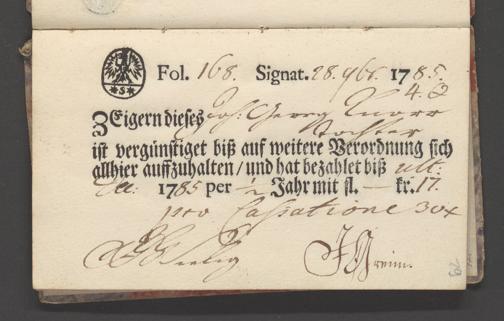 S
Fol. 168. Signat. 28. 9br. 1785.
4. 3
ZEigern dieses Joh: Georg Knorr
Tochter
ist vergünstiget biß auf weitere Verordnung sich
allhier auffzuhalten / und hat bezahlet biß ult:
1785 per ½ Jahr mit fl. — kr. 17.
pro Cassatione 30x